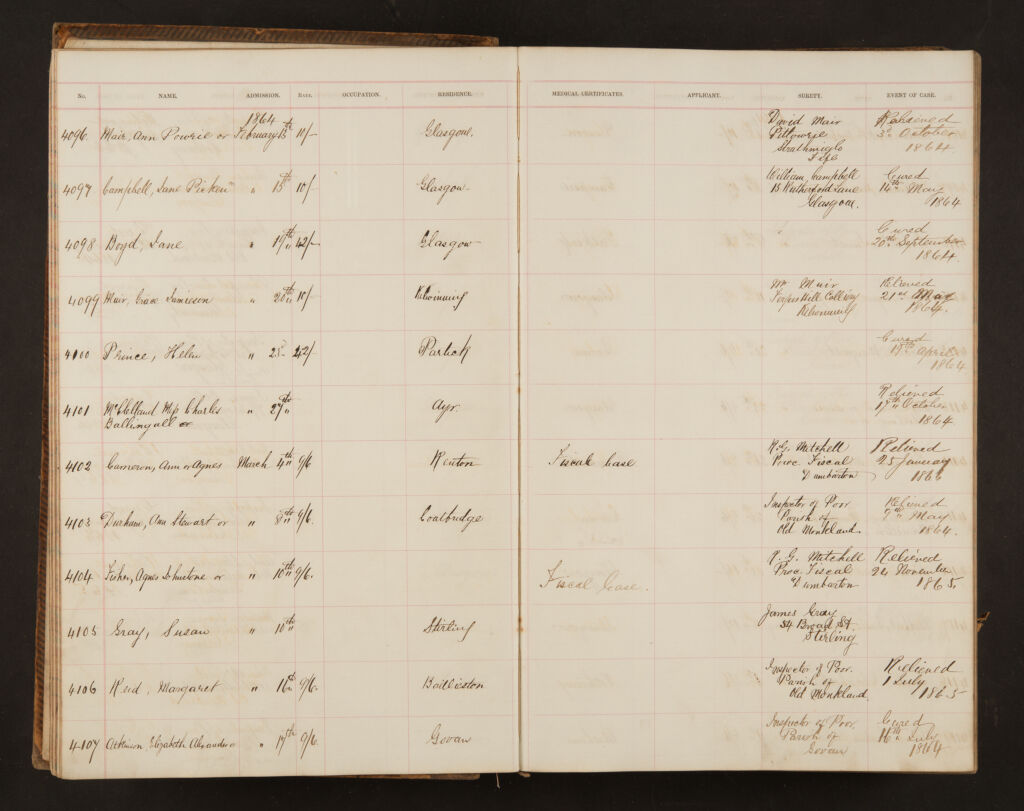 No. NAME. ADMISSION. RATE. OCCUPATION. RESIDENCE. MEDICAL CERTIFICATES. APPLICANT. SURETY. EVENT OF CASE.
1864
4096 Mair, Ann Powrie or February 15th 10/- Glasgow. David Mair Relieved
Pittowrie 3d October
Strathmiglo 1864.
Fife
4097 Campbell, Jane Picken " 15th 10/- Glasgow William Campbell Cured
15 Rutherford Lane 14th May
Glasgow. 1864
4098 Boyd, Jane " 19th 42/- Glasgow Cured
20th September
1864.
4099 Muir, Grace Jamieson " 20th 10/- Kilwinning Mr Muir Relieved
Fergus Hill Colliery 21st May
Kilwinning 1864.
4100 Prince, Helen " 25 42/- Partick Cured
19th April
1864
4101 McClelland Mrs Charles " 27th Ayr. Relieved
Ballingall or 17th October
1864
4102 Cameron, Ann or Agnes March 4th 9/6 Renton Fiscal Case R. G. Mitchell Relieved
Proc Fiscal 25 January
Dumbarton
4103 Durham, Ann Stewart or " 8th 9/6. Coatbridge Inspector of Poor Relieved
Parish of May
Old Monkland. 1864.
4104 Fisher, Agnes Johnstone or " 10th 9/6. Fiscal Case. R. G. Mitchell Relieved
Proc Fiscal 24 November
Dumbarton 1865.
4105 Gray, Susan " 10th Stirling James Gray
54 Broad St
Stirling
4106 Reid, Margaret " 16th 9/6. Bailieston Inspector of Poor. Relieved
Parish of 1 July
Old Monkland 1865
4107 Atkinson Elizabeth Alexander or " 17th 9/6. Govan Inspector of Poor. Cured
Parish of 16th July
Govan 1864